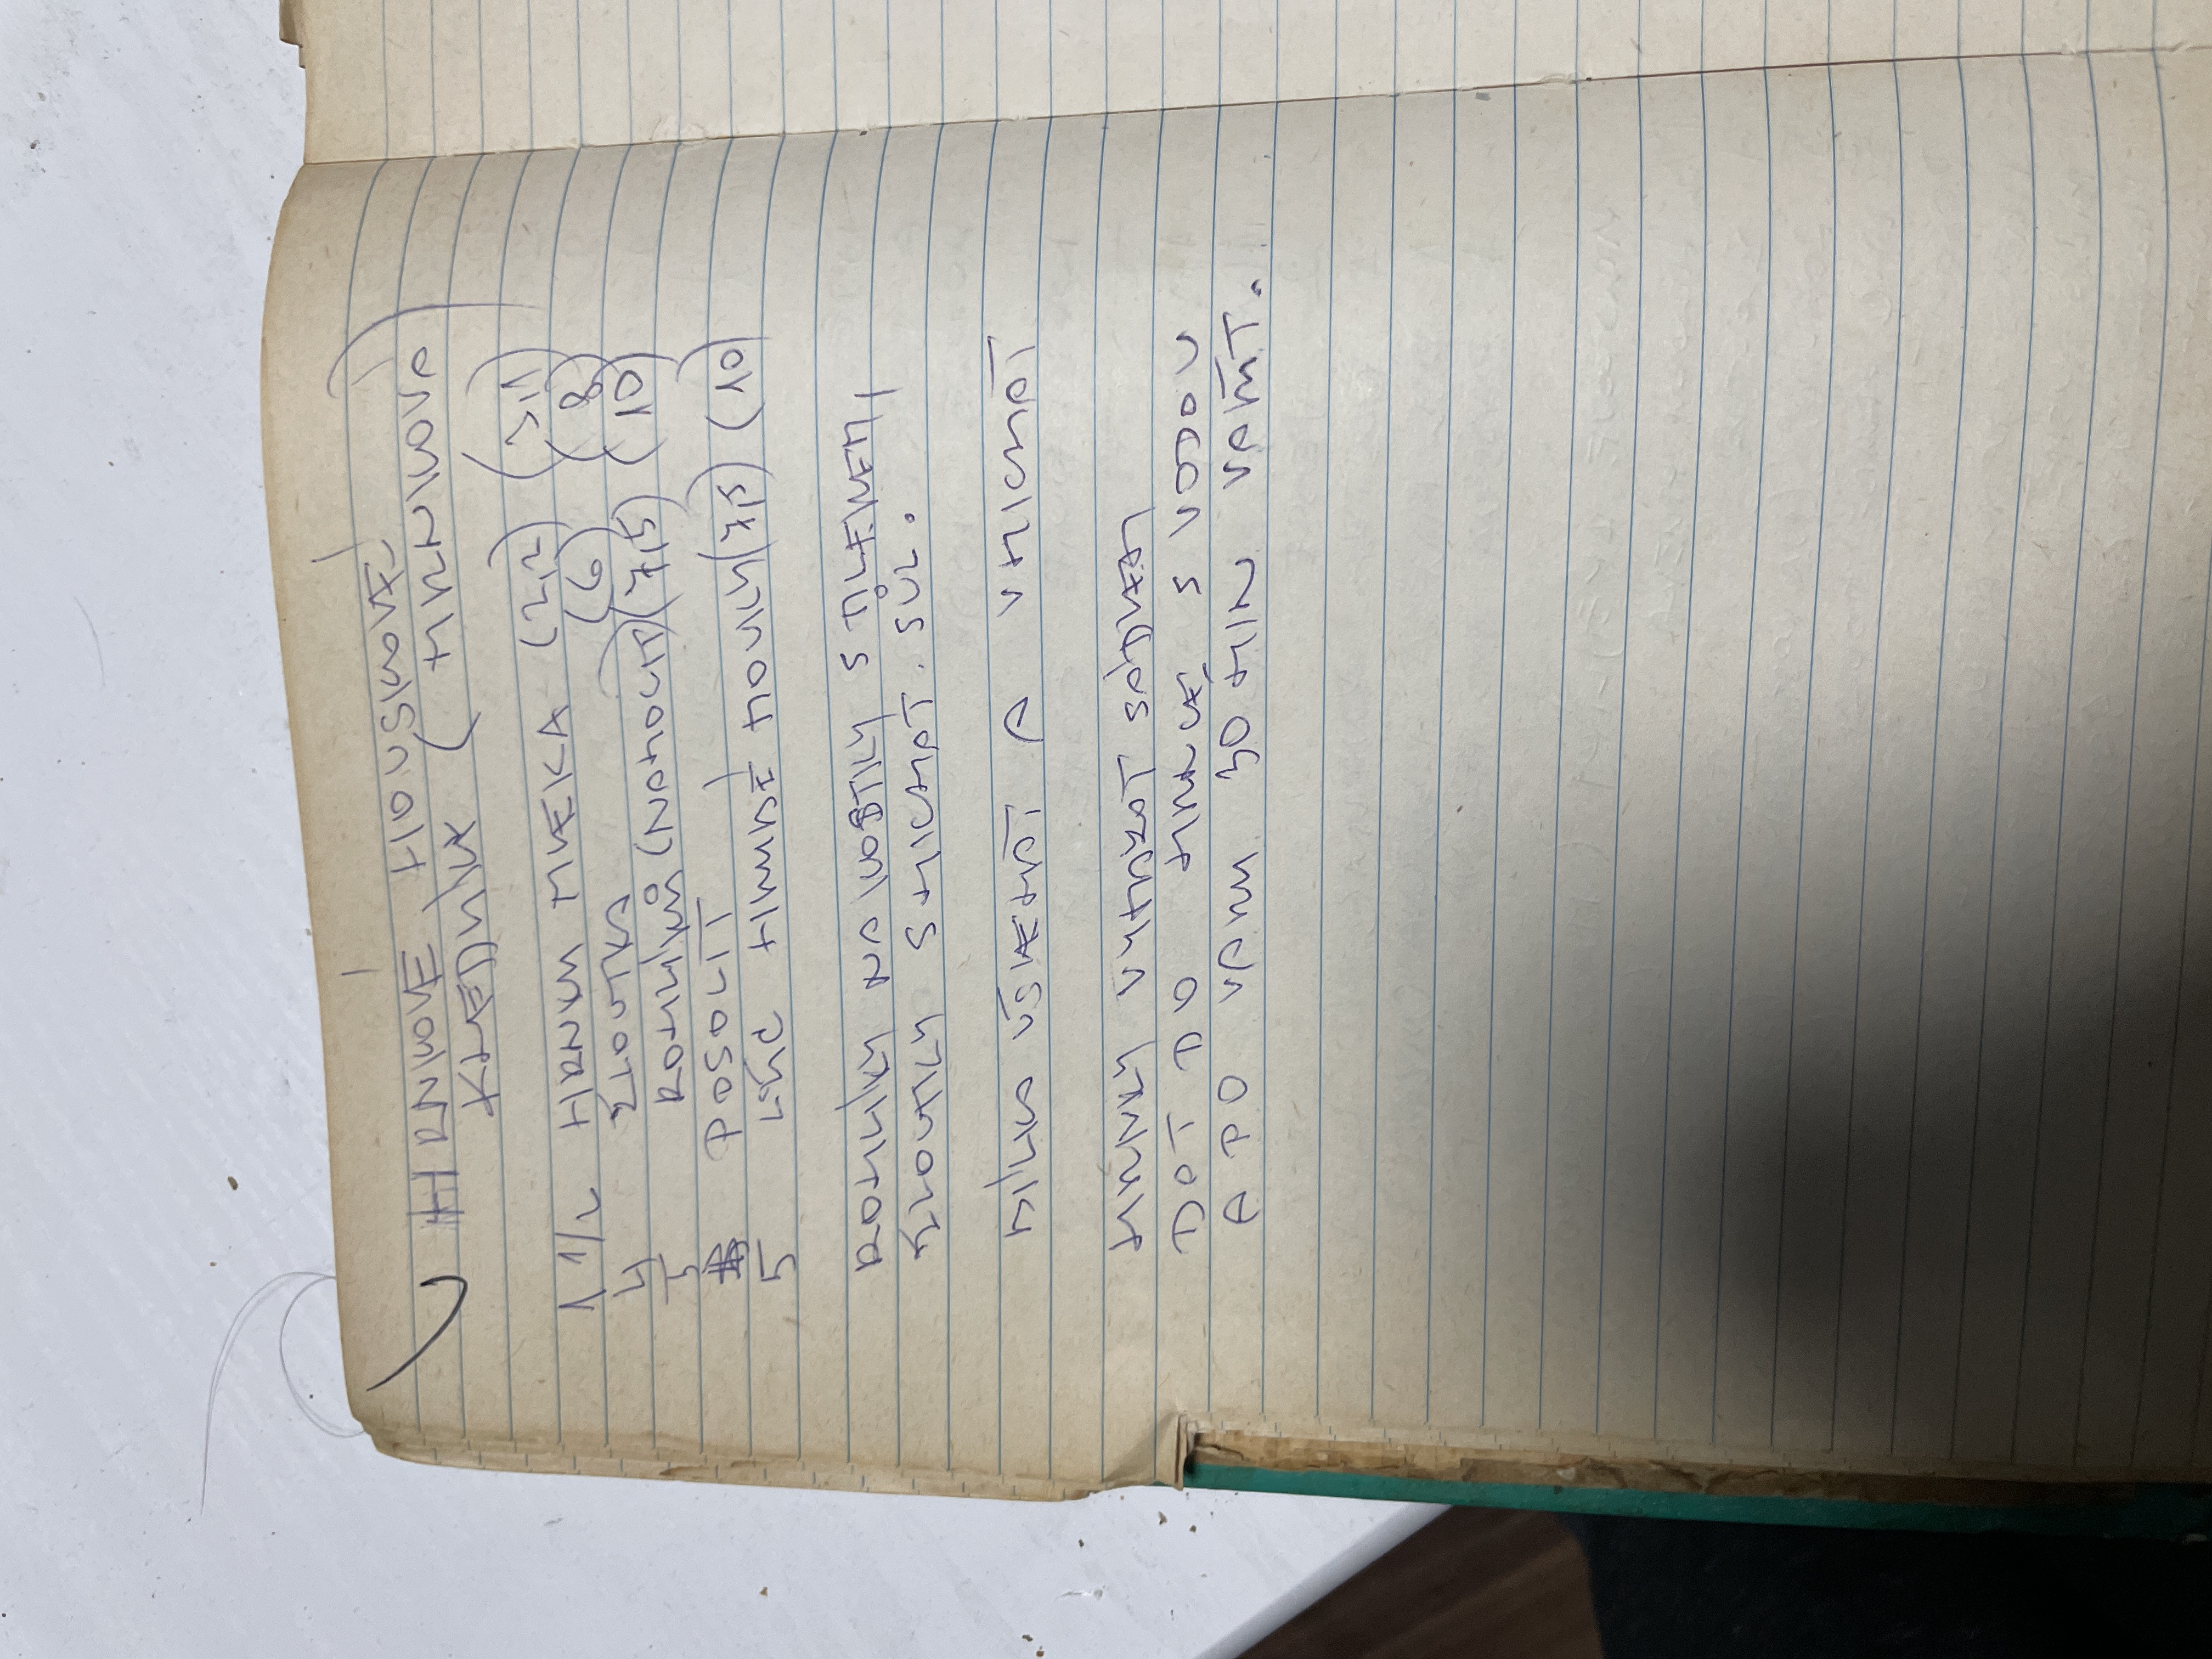 HRNKOVÉ HOUSKOVÉ
KNEDLÍKY (HRNKOVÁ)
1 1/2 HRNKU MLÉKA (2,2) (3,1)
4 ŽLOUTKA (6) (8)
5 ROHLÍKŮ (NAMOČIT) (7,5) (10)
POSOLIT
5 LŽIC HRUBÉ MOUKY (7,5) (10)
ROHLÍKY NA KOSTKY S MLÉKEM,
ŽLOUTKY SMÍCHAT. SŮL.
BÍLKA UŠLEHAT A VMÍCHAT
HRNKY VYMAZAT SÁDLEM
DÁT DO HRNCE S VODOU
A PO VARU 30 MIN VAŘIT.